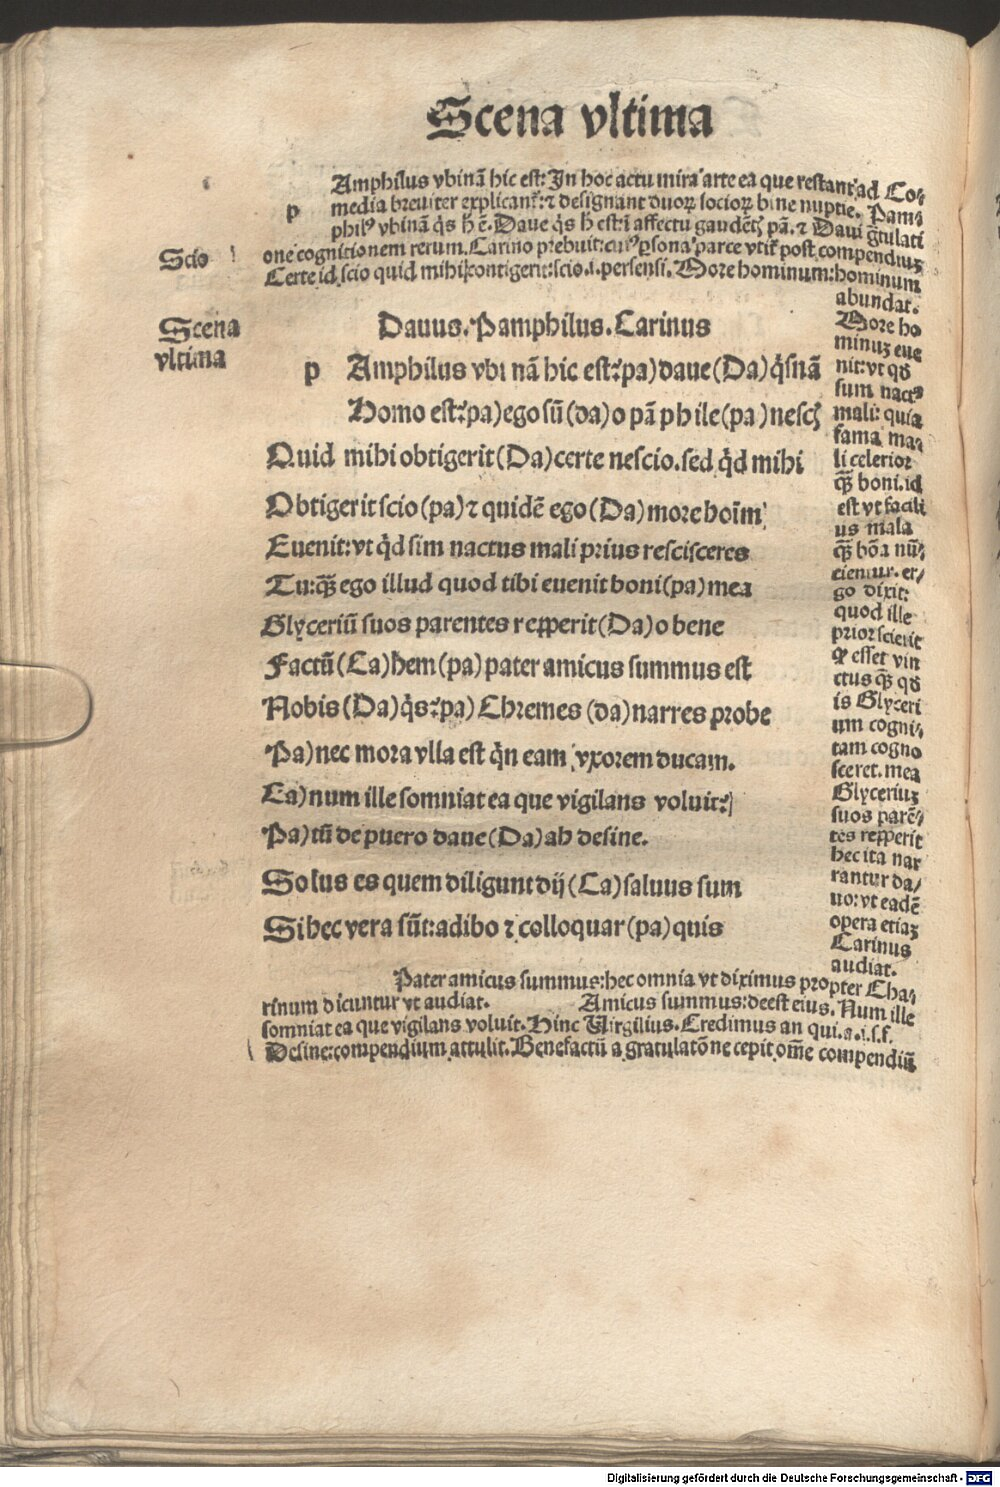 Scena vltima
Amphilus vbinā hic est: In hoc actu mira arte ea que restant ad Co⸗
p media breuiter explicant᷑: ⁊ designant duoꝝ socioꝝ bine nuptie. Pam⸗
philꝰ vbinā q̇s h ē. Daue q̇s h est: i affectu gaudētꝭ pā. ⁊ Daui g̃tulati
one cognitionem rerum. Carino prebuit: cuiꝰ ꝑsona parce vtit᷑ post compendiuꝫ
Scio
Certe id scio quid mihi contigerit: scio .i. persensi. More hominum: hominum
abundat.
Scena
vltima
Dauus. Pamphilus. Carinus
p Amphilus vbi nā hic est? pa) daue (Da) q̇snā
Homo est? pa) ego sū (da) o pā phile (pa) nescꝭ
Quid mihi obtigerit (Da) certe nescio. sed q̇d mihi
Obtigerit scio (pa) ⁊ quidē ego (Da) more hoīm
Euenit: vt q̇d sim nactus mali prius rescisceres
Tu: qꝫ̄ ego illud quod tibi euenit boni (pa) mea
Glyceriū suos parentes reꝑperit (Da) o bene
Factū (Ca) hem (pa) pater amicus summus est
Nobis (Da) q̇s? pa) Chremes (da) narres probe
Pa) nec mora vlla est q̇n eam vxorem ducam.
Ca) num ille somniat ea que vigilans voluit?
Pa) tū de puero daue (Da) ah desine.
Solus es quem diligunt dij (Ca) saluus sum
Si hec vera sūt: adibo ⁊ colloquar (pa) quis
More ho
minuꝫ eue
nit: vt qđ
sum nactꝰ
mali: quia
fama ma⸗
li celerior
qꝫ̄ boni. id
est vt facili
us mala
qꝫ̄ bōa nū⸗
cientur. er⸗
go dixit:
quod ille
prior scierit
ꝙ esset vin
ctus qꝫ̄ qđ
is Glyceri
um cogni⸗
tam cogno
sceret. mea
Glyceriuꝫ
suos parē⸗
tes reꝑperit
hec ita nar
rantur da⸗
uo: vt eadē
opera etiaꝫ
Carinus
audiat.
Pater amicus summus: hec omnia vt diximus propter Cha⸗
rinum dicuntur vt audiat. Amicus summus: deest eius. Num ille
somniat ea que vigilans voluit. Hinc Virgilius. Credimus an qui. a. i. s. f.
Desine: compendium attulit. Benefactū a gratulatōne cepit om̄e compendiū
Digitalisierung gefördert durch die Deutsche Forschungsgemeinschaft - DFG